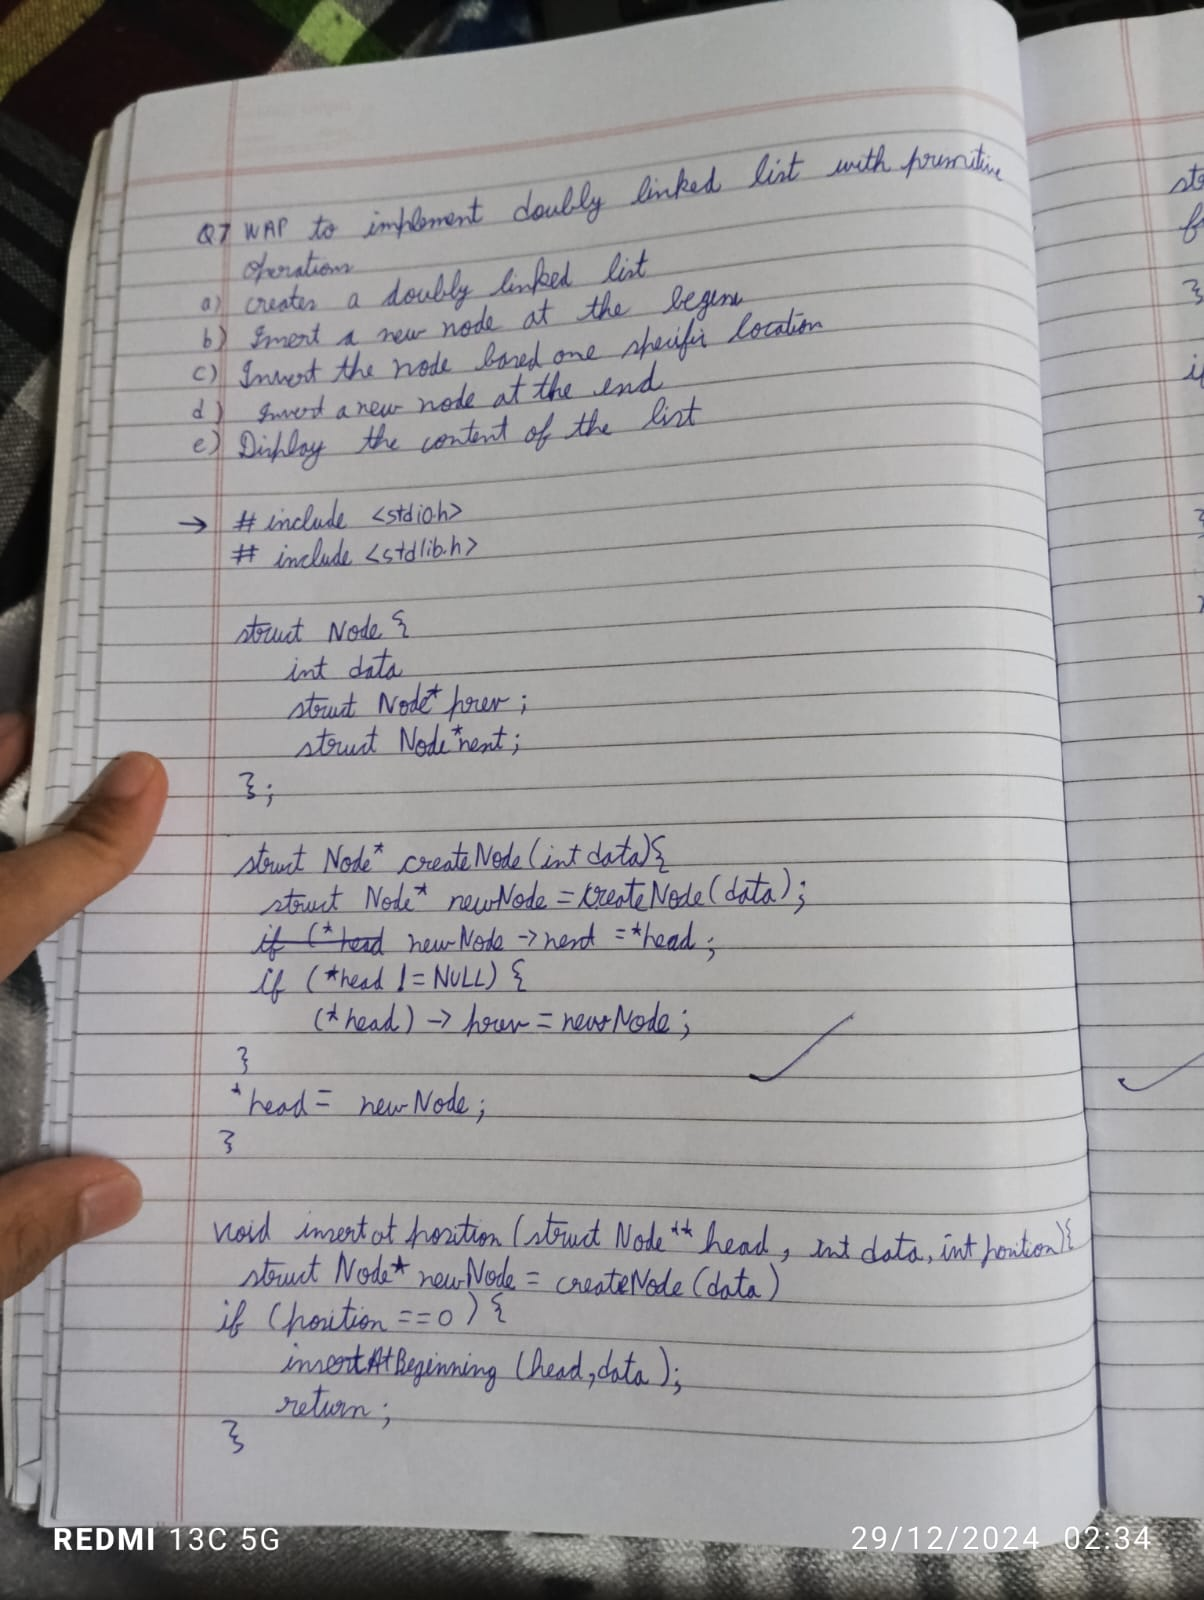 Q7 WAP to implement doubly linked list with primitive
operations
a) creates a doubly linked list
b) Insert a new node at the begene
c) Insert the node based one specific location
d) Insert a new node at the end
e) Display the content of the list
→ # include <stdio.h>
# include <stdlib.h>
struct Node {
int data
struct Node* prev ;
struct Node *next ;
} ;
struct Node* createNode (int data) {
struct Node* newNode = createNode (data) ;
if (*head newNode -> next = *head ;
if (*head != NULL) {
(*head) -> prev = newNode ;
}
*head = newNode ;
}
void insert at position (struct Node** head, int data, int position) {
struct Node* newNode = createNode (data)
if (position == 0) {
insertAtBeginning (head, data) ;
return ;
}
REDMI 13C 5G
29/12/2024 02:34